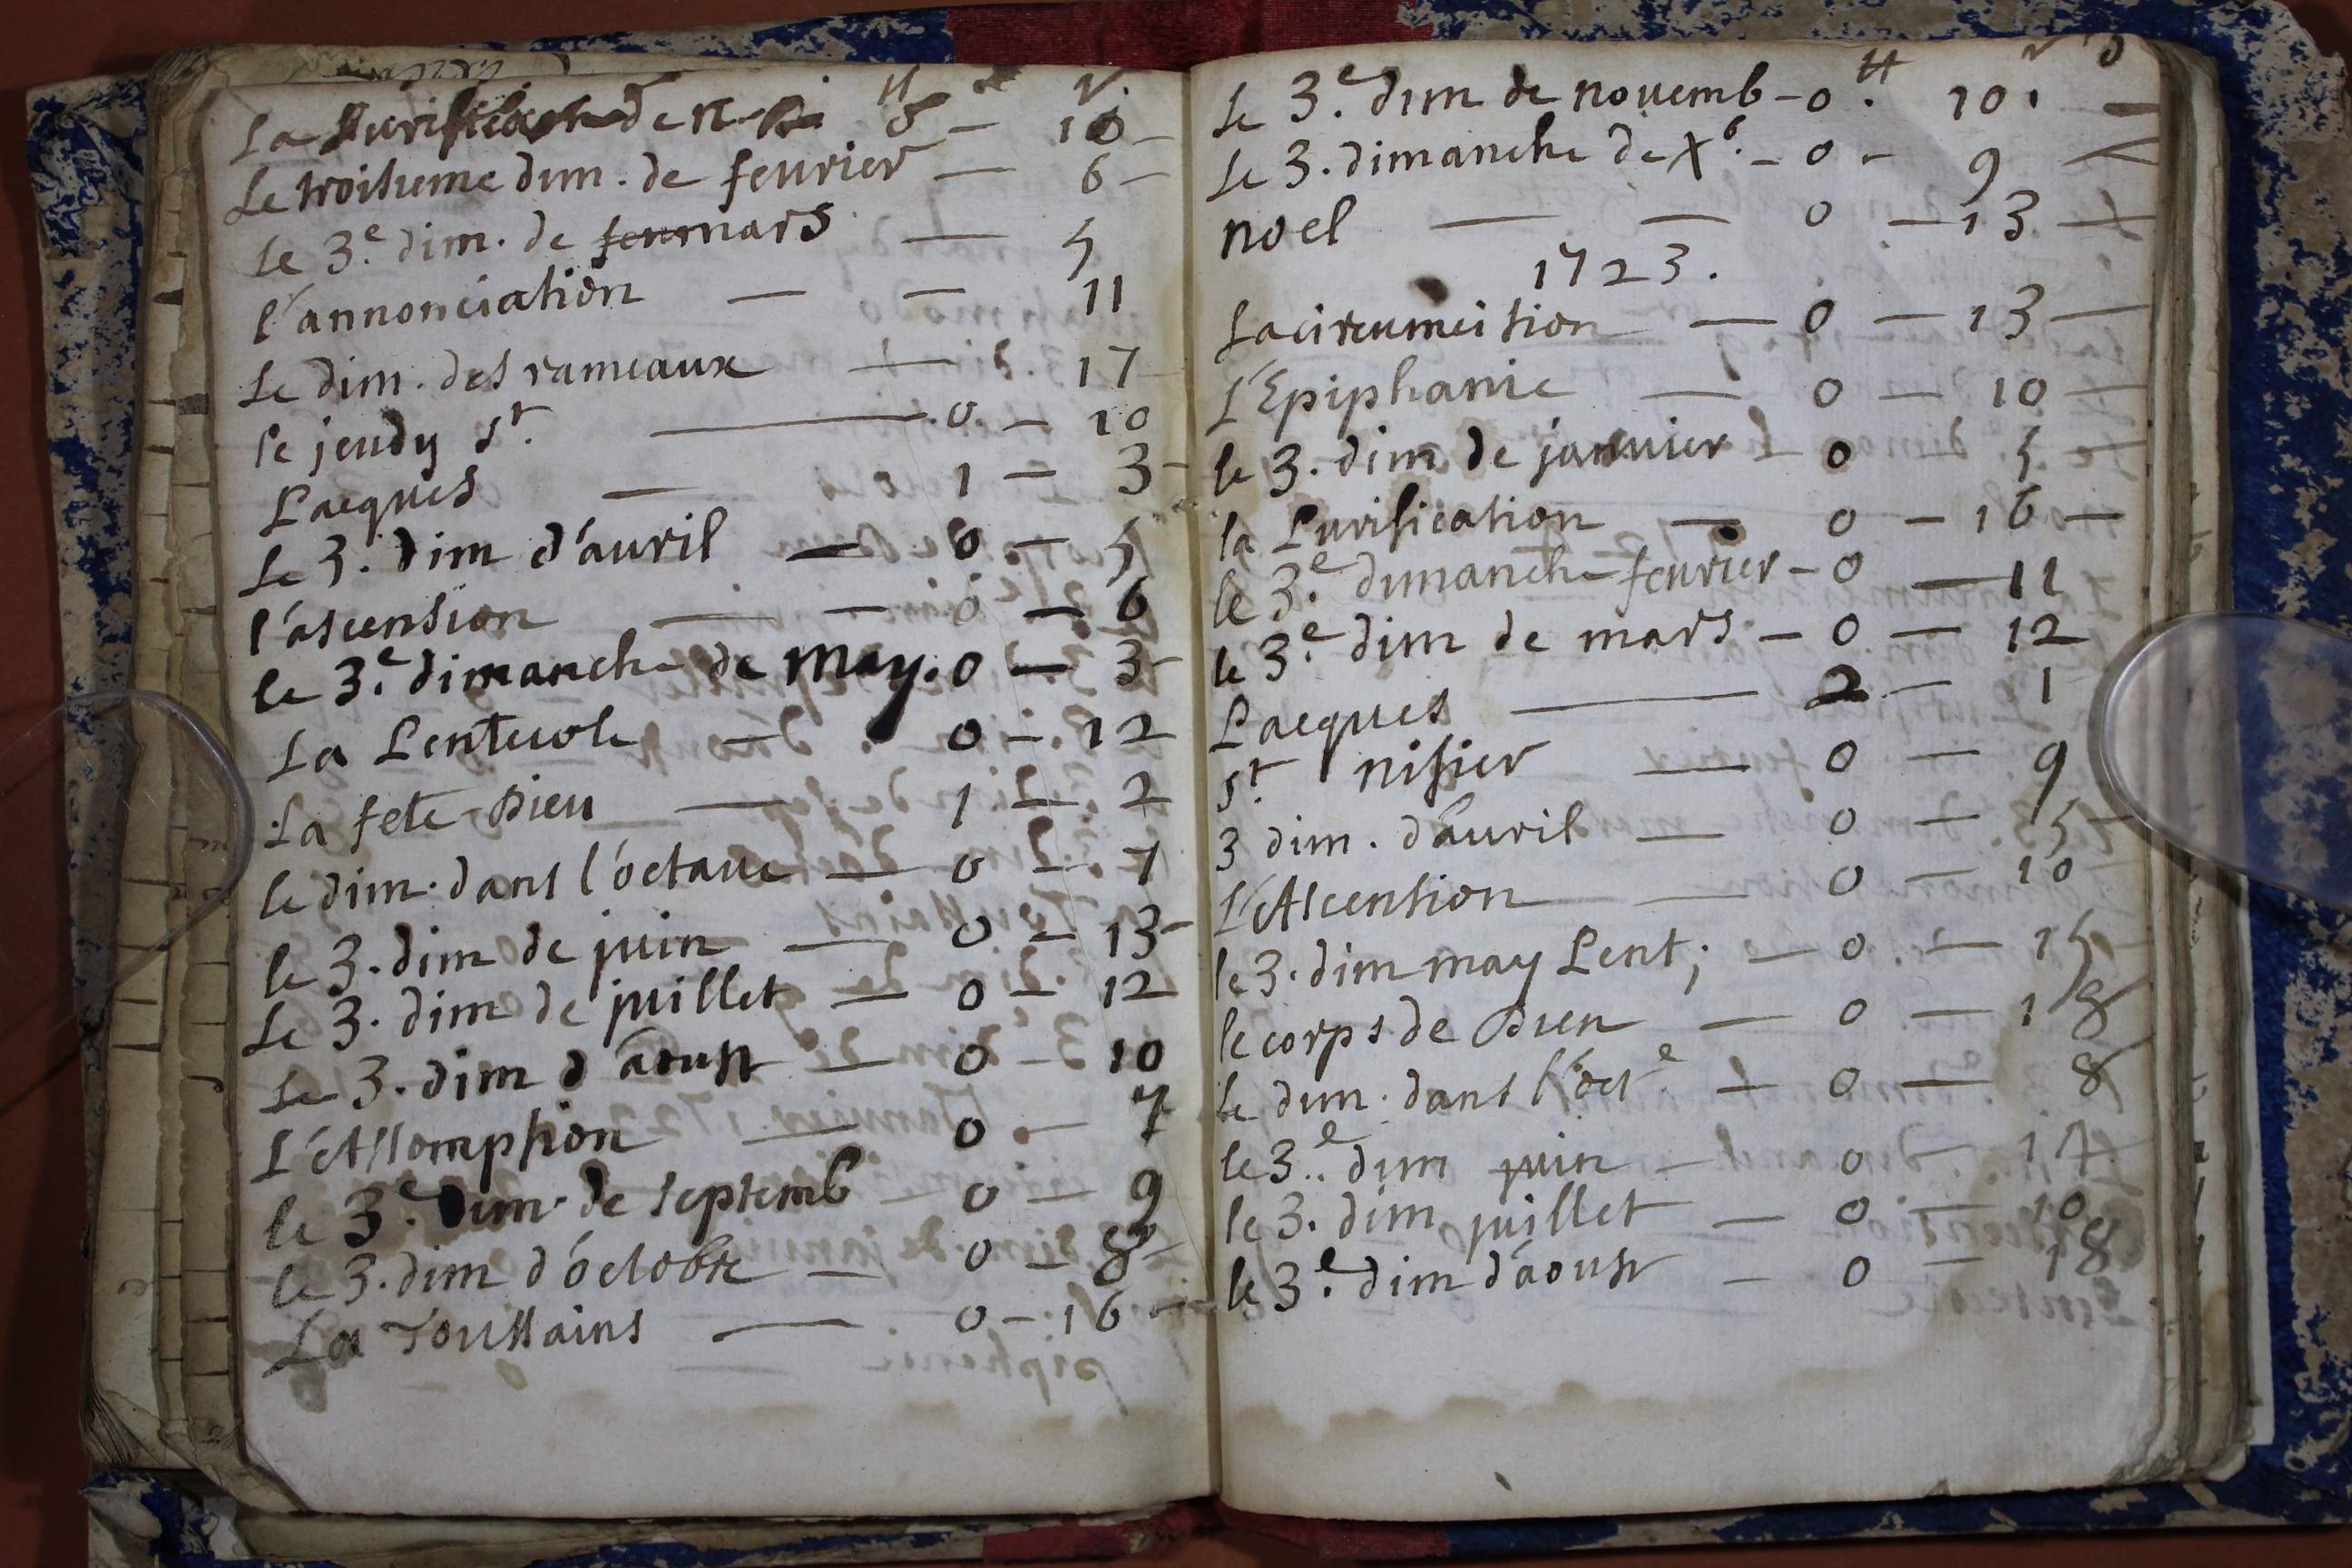 La Purification de n. 0 — 10 —
Le troisieme dim. de feurier — 6 —
Le 3.e dim. de feumars — 5
l'annonciation — — 11
Le dim. des rameaux — 17
le jeudy st. — 0 — 10
Pacques — 1 — 3 —
Le 3. dim d'auril — 0 — 5
l'ascension — — 0 — 6
le 3.e dimanche de may. 0 — 3 —
La Pentecote — 0 — 12
La fete Dieu — 1 — 2
le dim. dans l'octaue — 0 — 7
le 3. dim de juin — 0 — 13 —
Le 3. dim de juillet — 0 — 12
Le 3. dim d'aoust — 0 — 10
L'Assomption — 0 — 7
le 3.e dim. de septemb — 0 — 9
le 3. dim d'octobre — 0 — 8 —
La Toussains — 0 — 16 —
Le 3.e dim de nouemb — 0 . 10 .
Le 3. dimanche de Xb. — 0 — 9
noel — — 0 — 13 —
1723.
La circumcition — 0 — 13 —
L'Epiphanie — 0 — 10 —
le 3. dim de januier — 0 5 —
la Purification — 0 — 16 —
le 3.e dimanche feurier — 0 — 11
le 3.e dim de mars — 0 — 12
Pacques — 2 — 1
st. nisier — 0 — 9
3 dim. d'auril — 0 — 5 —
L'Ascention — 0 — 10
le 3. dim may Pent; — 0 — 15 —
le corps de Dieu — 0 — 18
Le dim. dans l'oct.e — 0 — 8
le 3.e dim juin — 0 — 17
le 3. dim juillet — 0 — 10
le 3.e dim d'aoust — 0 — 18